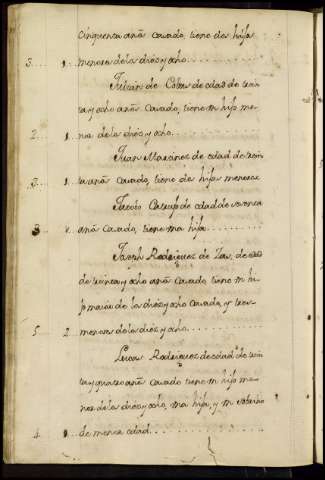 cinquenta años casado, tiene dos hijos
3... 1.. menores de los dies y ocho.......
Julian de de edad de trein
ta y ocho años casado, tiene un hijo me
2... 1.. nor de los dies y ocho..........
Juan Martinez de edad de trein
3... 1.. ta años casado, tiene dos hijos menores
de edad de sesenta
3 años casado, tiene una hija.......
Joseph Rodriguez de de edad
de treinta y ocho años casado tiene un hi
jo maior de los dies y ocho casado, y tres
5 2. menores de los dies y ocho..........
Lucas Rodriguez de edad de trein
ta y quatro años casado tiene un hijo me
nor de los dies y ocho, una hija, y un
4 1.. de menor edad.............